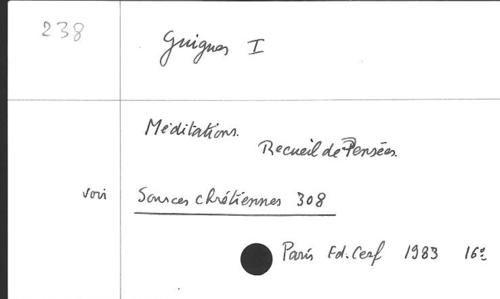 238
Guigues I
Méditations.
Recueil de Pensées.
voir Sources chrétiennes 308
Paris Ed. Cerf 1983 16º